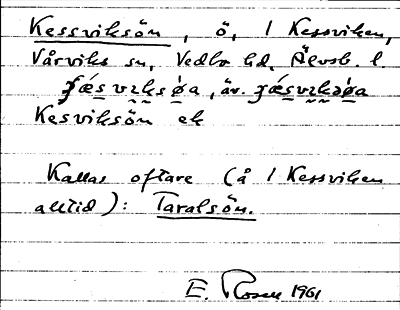 Kessviksön, ö, i Kessviken,
Vårviks sn, Vedbo hd, Älvsb. l.
Kesviksön ek
Kallas oftare (å i Kessviken
alltid): Taralsön.
E. Rosen 1961